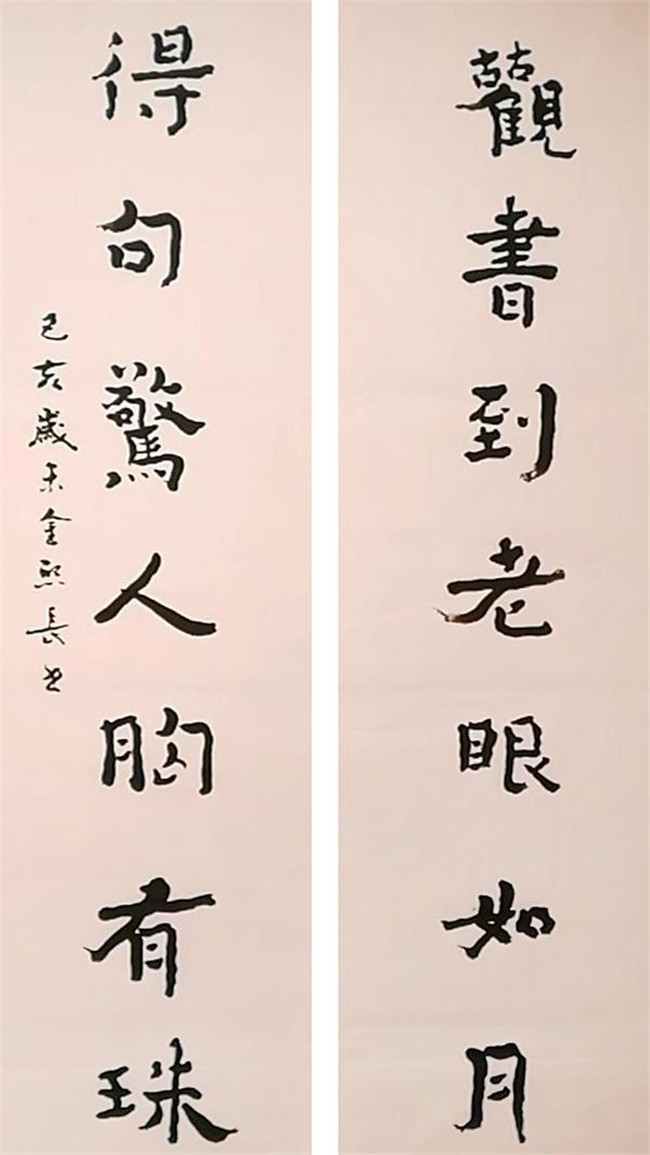 觀書到老眼如月
得句驚人胸有珠
己亥歲末金熙長書